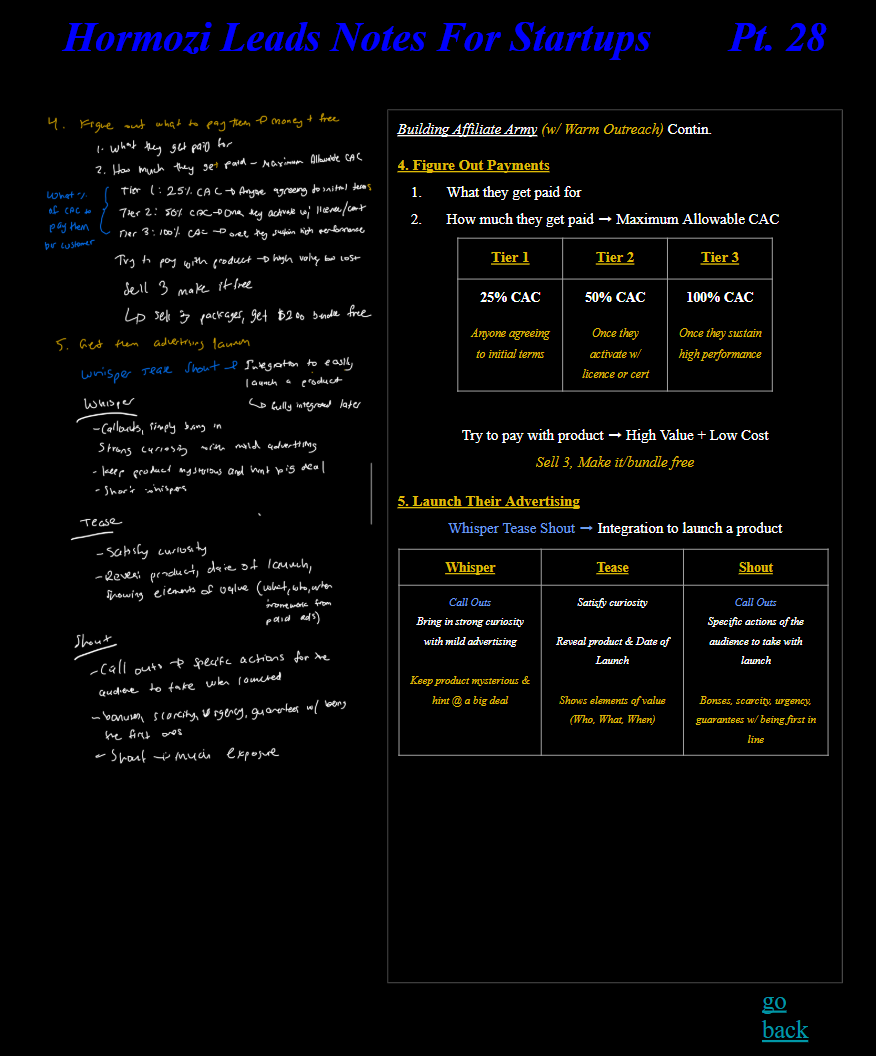 Hormozi Leads Notes For Startups Pt. 28
4. Figue out what to pay them → money + free
1. What they get paid for
2. How much they get paid - Maximum Allowable CAC
What %
of CAC to
pay them
per customer
Tier 1: 25% CAC → Anyone agreeing to initial terms
Tier 2: 50% CAC → Once they activate w/ licence/cert
Tier 3: 100% CAC → once they sustain high performance
Try to pay with product → high value low cost
Sell 3 make it free
↳ sell 3 packages, get $200 bundle free
5. Get them advertising launch
Whisper Tease Shout → Integration to easily
launch a product
↳ fully integrated later
Whisper
- Callouts, simply bring in
strong curiosity with mild advertising
- keep product mysterious and hint big deal
- Short whispers
Tease
- Satisfy curiosity
- Reveal product, date of launch,
showing elements of value (what, who, when
framework from
paid ads)
Shout
- Call outs → specific actions for the
audience to take when launched
- bonuses, scarcity, urgency, guarantees w/ being
the first ones
- Shout → much exposure
Building Affiliate Army (w/ Warm Outreach) Contin.
4. Figure Out Payments
1. What they get paid for
2. How much they get paid → Maximum Allowable CAC
Tier 1 Tier 2 Tier 3
25% CAC 50% CAC 100% CAC
Anyone agreeing Once they Once they sustain
to initial terms activate w/ high performance
licence or cert
Try to pay with product → High Value + Low Cost
Sell 3, Make it/bundle free
5. Launch Their Advertising
Whisper Tease Shout → Integration to launch a product
Whisper Tease Shout
Call Outs Satisfy curiosity Call Outs
Bring in strong curiosity Specific actions of the
with mild advertising Reveal product & Date of audience to take with
Launch launch
Keep product mysterious &
hint @ a big deal Shows elements of value Bonses, scarcity, urgency,
(Who, What, When) guarantees w/ being first in
line
go
back